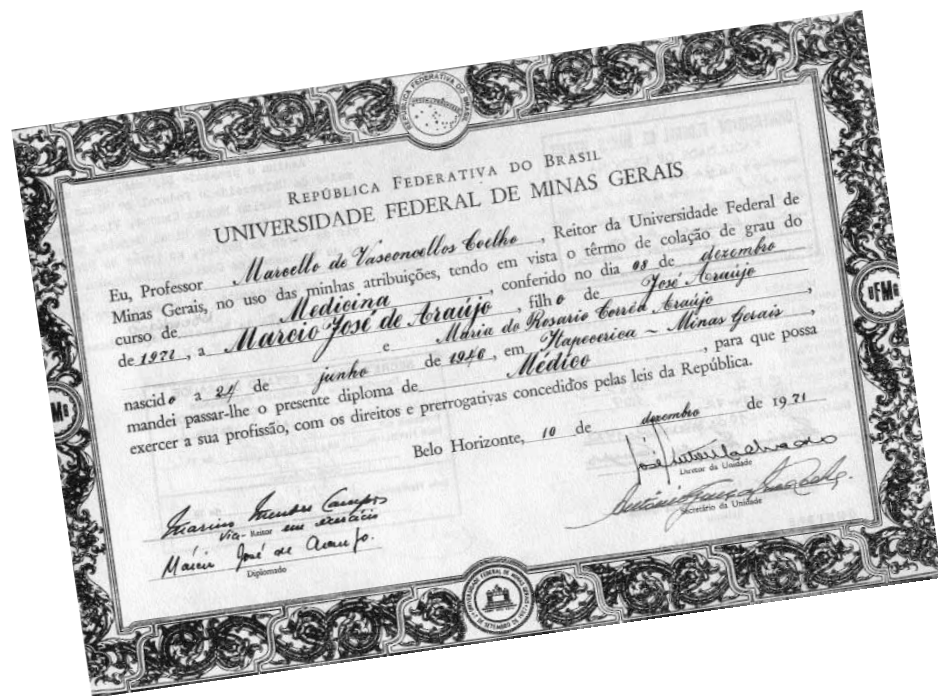 REPÚBLICA FEDERATIVA DO BRASIL
UNIVERSIDADE FEDERAL DE MINAS GERAIS
Eu, Professor Marcello de Vasconcellos Coelho, Reitor da Universidade Federal de
Minas Gerais, no uso das minhas atribuições, tendo em vista o têrmo de colação de grau do
curso de Medicina, conferido no dia 08 de dezembro
de 1971, a Marcio José de Araújo, filho de José Araújo
e Maria do Rosario Corrêa Araújo
nascido a 24 de junho de 1946, em Itapecerica - Minas Gerais,
mandei passar-lhe o presente diploma de Médico, para que possa
exercer a sua profissão, com os direitos e prerrogativas concedidos pelas leis da República.
Belo Horizonte, 10 de dezembro de 1971
Diretor da Unidade
Secretário da Unidade
Marino Mendes Campos
Vice-Reitor em exercício
Márcio José de Araujo.
Diplomado
UFMG